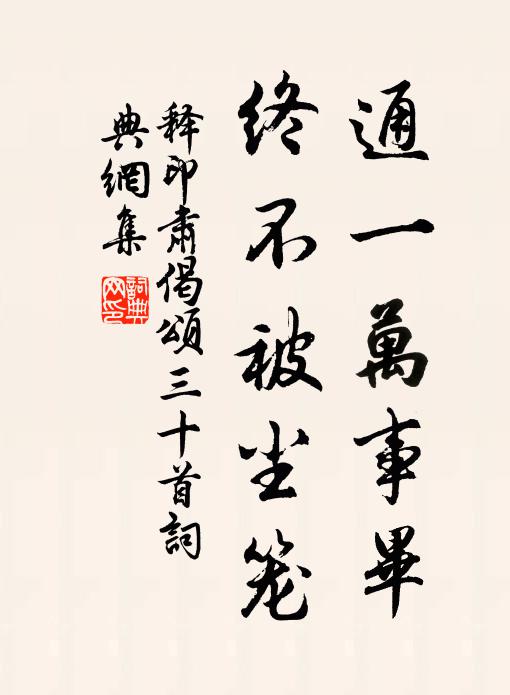 通一萬事畢
終不被尘笼
释印肅偈頌三十首詞
典網集
詞典
网印